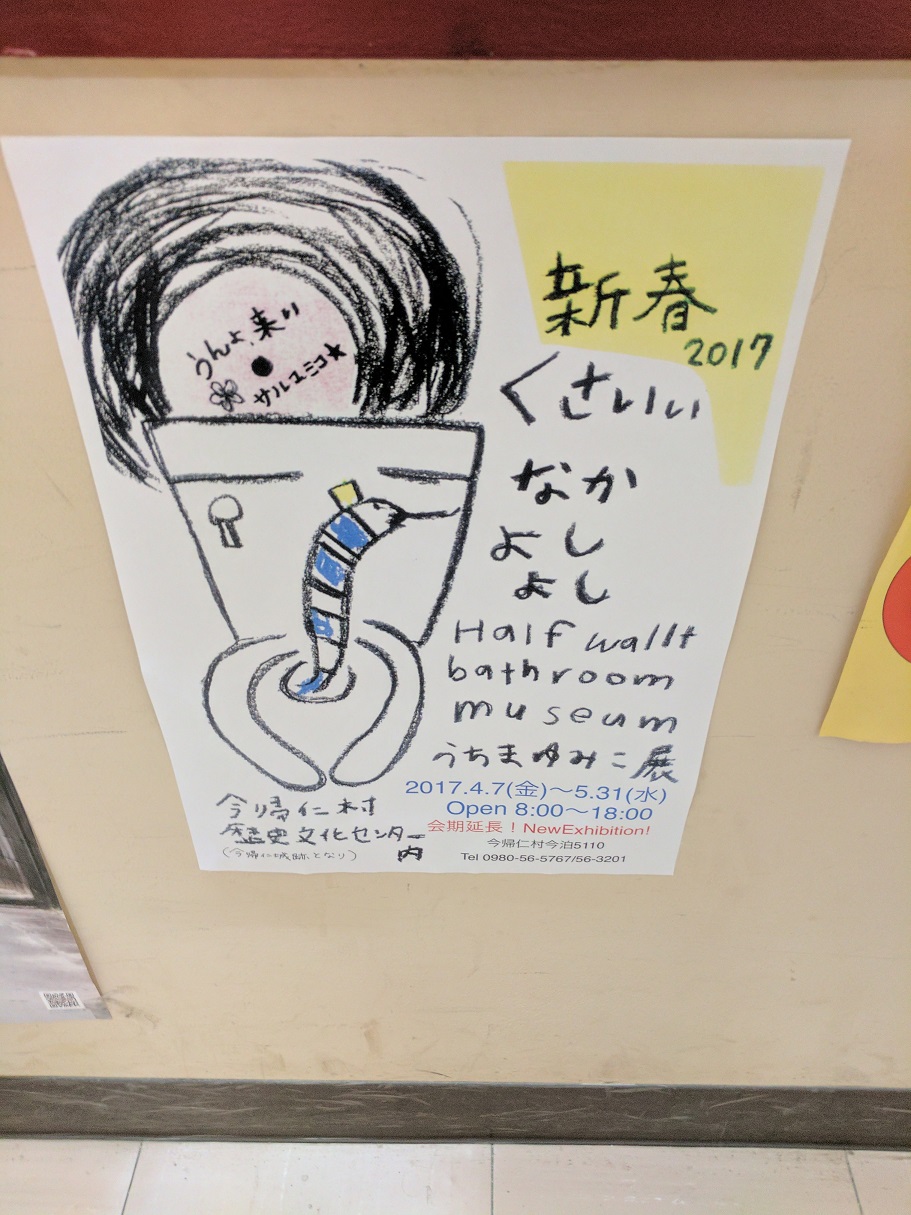 うんよ、来い
サルユミコ★
新春
2017
くさいい
なか
よし
よし
Half wallt
bathroom
museum
うちまゆみこ展
2017.4.7(金)～5.31(水)
Open 8:00～18:00
会期延長！NewExhibition!
今帰仁村今泊5110
Tel 0980-56-5767/56-3201
今帰仁村
歴史文化センター
内
(今帰仁城跡となり)